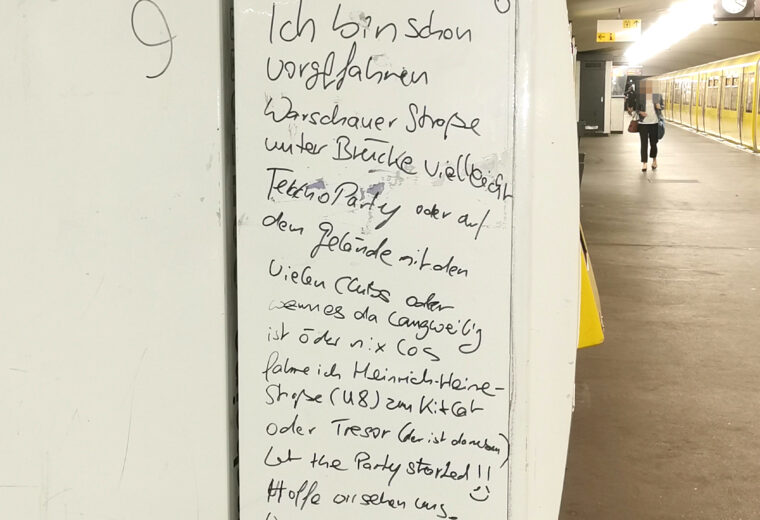 Ich bin schon
vorgefahren
Warschauer Straße
unter Brücke vielleicht
Techno Party oder auf
dem Gelände mit den
vielen Clubs oder
wenn es da langweilig
ist oder nix los
fahre ich Heinrich-Heine-
Straße (U8) zum KitCat
oder Tresor (der ist daneben)
Let the Party started!!
Hoffe wir sehen uns.